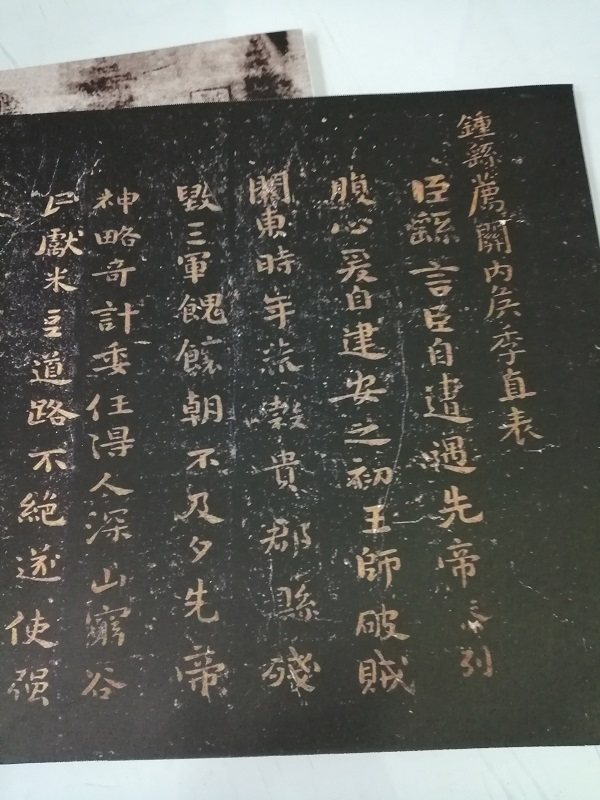 鍾繇薦關内侯季直表
臣繇言臣自遭遇先帝忝列
腹心爰自建安之初王師破賊
關東時年荒穀貴郡縣殘
毀三軍餽饟朝不及夕先帝
神略奇計委任得人深山窮谷
民獻米豆道路不絕遂使强